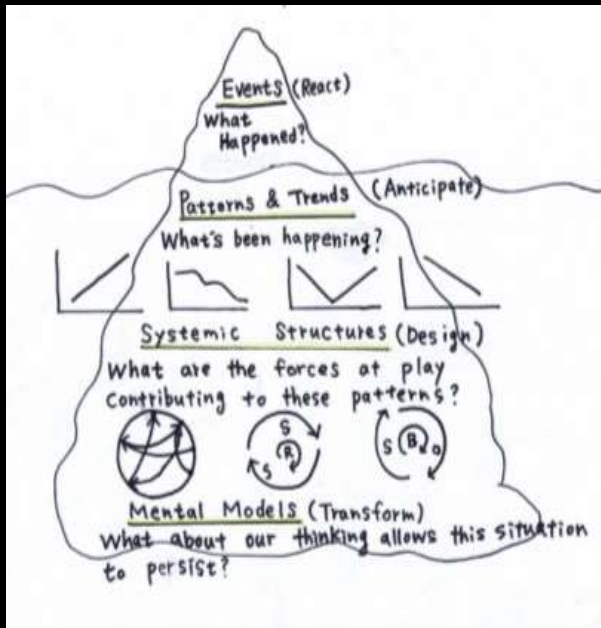 Events (React)
What
Happened?
Patterns & Trends (Anticipate)
What's been happening?
Systemic Structures (Design)
What are the forces at play
contributing to these patterns?
S
R
S
S
B
o
Mental Models (Transform)
What about our thinking allows this situation
to persist?